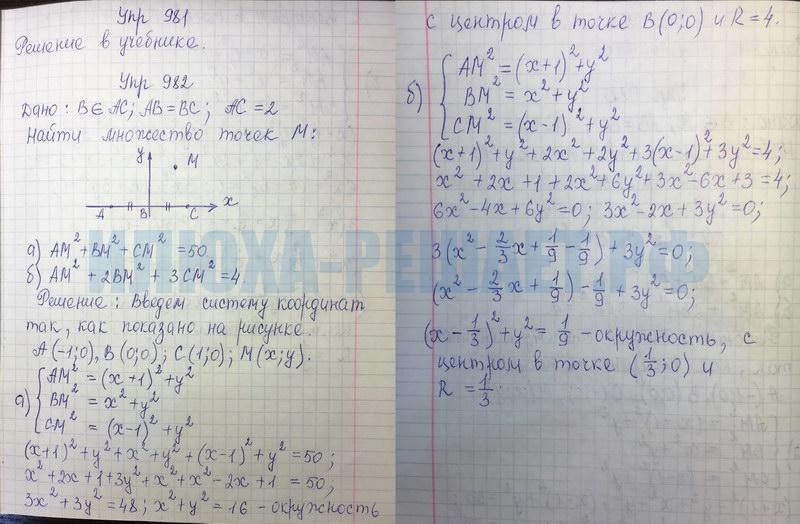 Упр 981
Решение в учебнике.
Упр 982
Дано: B∈AC; AB=BC; AC=2
Найти множество точек M:
y
M
A
B
C
x
а) AM²+BM²+CM²=50
б) AM²+2BM²+3CM²=4
Решение: Введем систему координат
так, как показано на рисунке.
A(-1;0), B(0;0); C(1;0); M(x;y).
а) { AM²=(x+1)²+y²
BM²=x²+y²
CM²=(x-1)²+y²
(x+1)²+y²+x²+y²+(x-1)²+y²=50;
x²+2x+1+3y²+x²+x²-2x+1=50,
3x²+3y²=48; x²+y²=16 - окружность
с центром в точке B(0;0) и R=4.
б) { AM²=(x+1)²+y²
BM²=x²+y²
CM²=(x-1)²+y²
(x+1)²+y²+2x²+2y²+3(x-1)²+3y²=4;
x²+2x+1+2x²+6y²+3x²-6x+3=4;
6x²-4x+6y²=0; 3x²-2x+3y²=0;
3(x²-2/3x+1/9-1/9)+3y²=0;
(x²-2/3x+1/9)-1/9+3y²=0;
(x-1/3)²+y²=1/9 - окружность, с
центром в точке (1/3;0) и
R=1/3.
ИЛЮХА-РЕШАЕТ.РФ